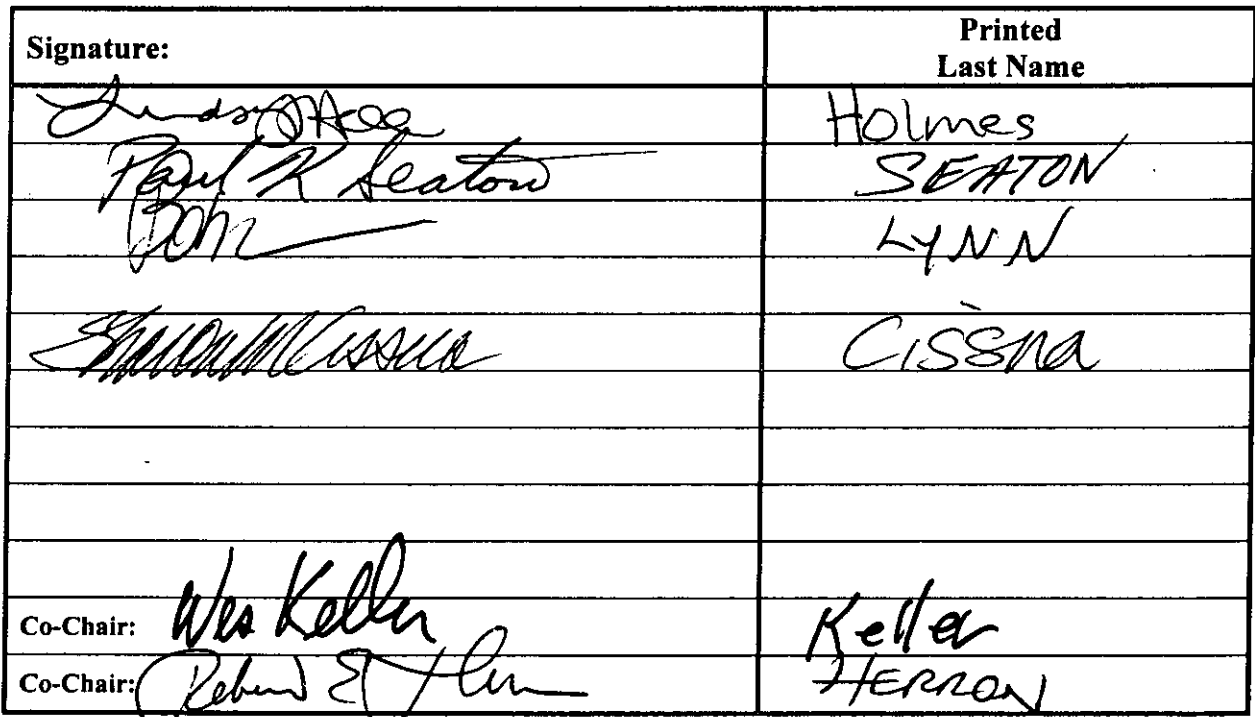 Signature: Printed Last Name
Lindsay Holmes
Paul R Seaton SEATON
LYNN
Sharon M Cissna Cissna
Co-Chair: Wes Keller Keller
Co-Chair: HERRON